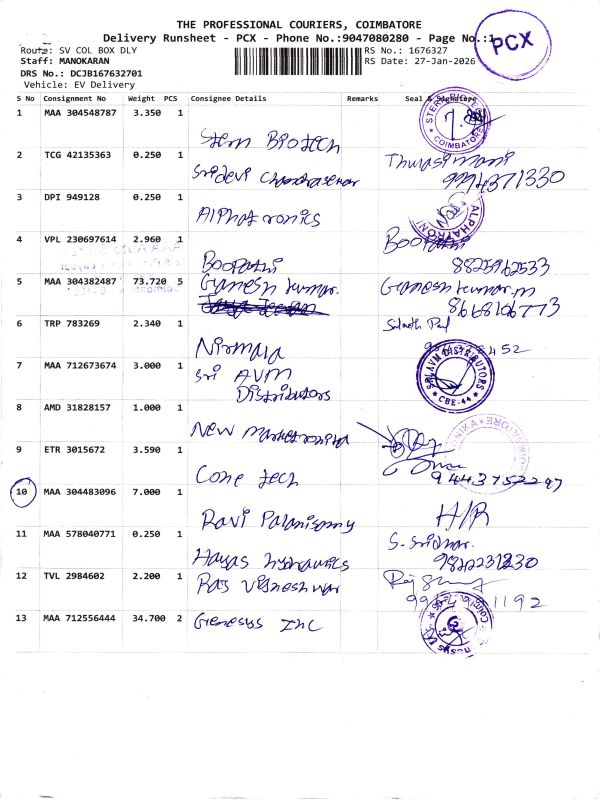 THE PROFESSIONAL COURIERS, COIMBATORE
Delivery Runsheet - PCX - Phone No.:9047080280 - Page No.:1
PCX
Route: SV COL BOX DLY
RS No.: 1676327
Staff: MANOKARAN
RS Date: 27-Jan-2026
DRS No.: DCJB167632701
Vehicle: EV Delivery
S No Consignment No Weight PCS Consignee Details Remarks Seal & Signature
1 MAA 304548787 3.350 1
Stern Biotech
COIMBATORE
2 TCG 42135363 0.250 1
Sridevi Chandrasekar
Thulasimani
9994371330
3 DPI 949128 0.250 1
Alphatronics
ALPHATRONI
4 VPL 230697614 2.960 1
Boopathi
Boopathi
5 MAA 304382487 73.720 5
Ganesh kumar.
Ganesh kumar.m
8668106773
6 TRP 783269 2.340 1
Nirmala
7 MAA 712673674 3.000 1
Sri AVM
Distributors
SRI AVM DISTRIBUTORS
CBE-44
8 AMD 31828157 1.000 1
9 ETR 3015672 3.590 1
Cone tech
10 MAA 304483096 7.000 1
Ravi Palanisamy
H/R
11 MAA 578040771 0.250 1
S. Sridhar.
12 TVL 2984602 2.200 1
Raj Vigneshwar
Raj
13 MAA 712556444 34.700 2
Genesys Inc